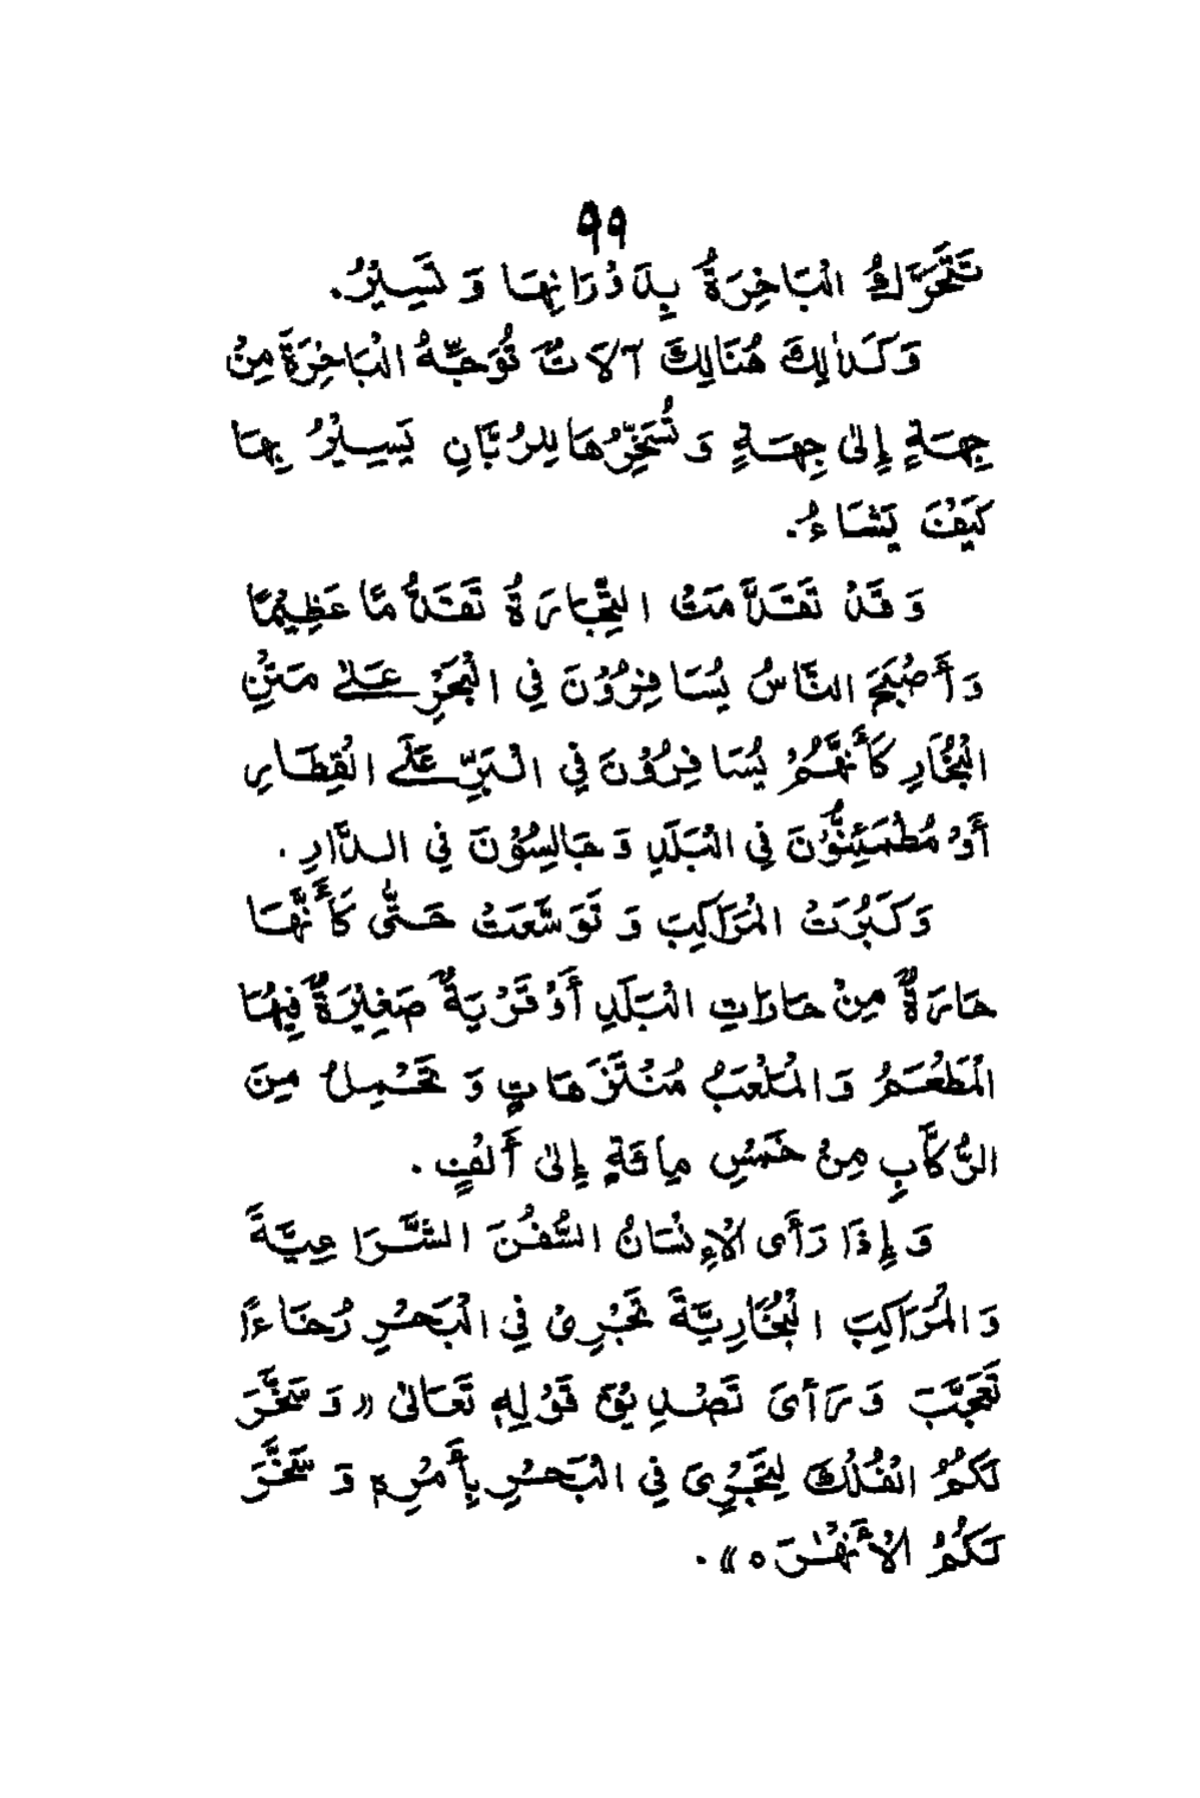 ٩٩
تَتَحَرَّكُ الْبَاخِرَةُ بِدَوْرَانِهَا وَ تَسِيْرُ.
وَكَذٰلِكَ هُنَالِكَ آلَاتٌ تُوَجِّهُ الْبَاخِرَةَ مِنْ
جِهَةٍ إِلىٰ جِهَةٍ وَ تُسَخِّرُهَا لِلرُّبَّانِ يَسِيْرُ بِهَا
كَيْفَ يَشَاءُ.
وَ قَدْ تَقَدَّمَتْ التِّجَارَةُ تَقَدُّمًا عَظِيْمًا
وَأَصْبَحَ النَّاسُ يُسَافِرُوْنَ فِي الْبَحْرِ عَلىٰ مَتْنِ
الْبُخَارِ كَأَنَّهُمْ يُسَافِرُوْنَ فِي الْبَرِّ عَلَى الْقِطَارِ
أَوْ مُطْمَئِنُّوْنَ فِي الْبَلَدِ وَ جَالِسُوْنَ فِي الدَّارِ.
وَكَبُرَتْ الْمَرَاكِبُ وَ تَوَسَّعَتْ حَتّٰى كَأَنَّهَا
حَارَةٌ مِنْ حَارَاتِ الْبَلَدِ أَوْ قَرْيَةٌ صَغِيْرَةٌ فِيْهَا
الْمَطْعَمُ وَالْمَلْعَبُ مُنْتَزَهَاتٍ وَ تَحْمِلُ مِنَ
الرُّكَّابِ مِنْ خَمْسِ مِائَةٍ إِلىٰ أَلْفٍ.
وَ إِذَا رَأَى الْإِنْسَانُ السُّفُنَ الشِّرَاعِيَّةَ
وَالْمَرَاكِبَ الْبُخَارِيَّةَ تَجْرِيْ فِي الْبَحْرِ رُخَاءً
تَعَجَّبَ وَ رَأىَ تَصْدِيْقَ قَوْلِهِ تَعَالىٰ «وَسَخَّرَ
لَكُمُ الْفُلْكَ لِتَجْرِيَ فِي الْبَحْرِ بِأَمْرِهٖ وَ سَخَّرَ
لَكُمُ الْأَنْهٰرَ ٥».